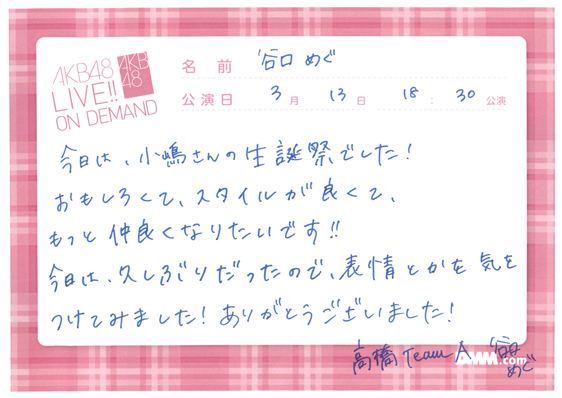 AKB48
LIVE!!
ON DEMAND
AKB
48
名前 谷口 めぐ
公演日 3月 13日 18:30 公演
今日は、小嶋さんの生誕祭でした！
おもしろくて、スタイルが良くて、
もっと仲良くなりたいです!!
今日は、久しぶりだったので、表情とかを気を
つけてみました！ありがとうございました！
高橋 Team A 谷口
めぐ
DMM.com